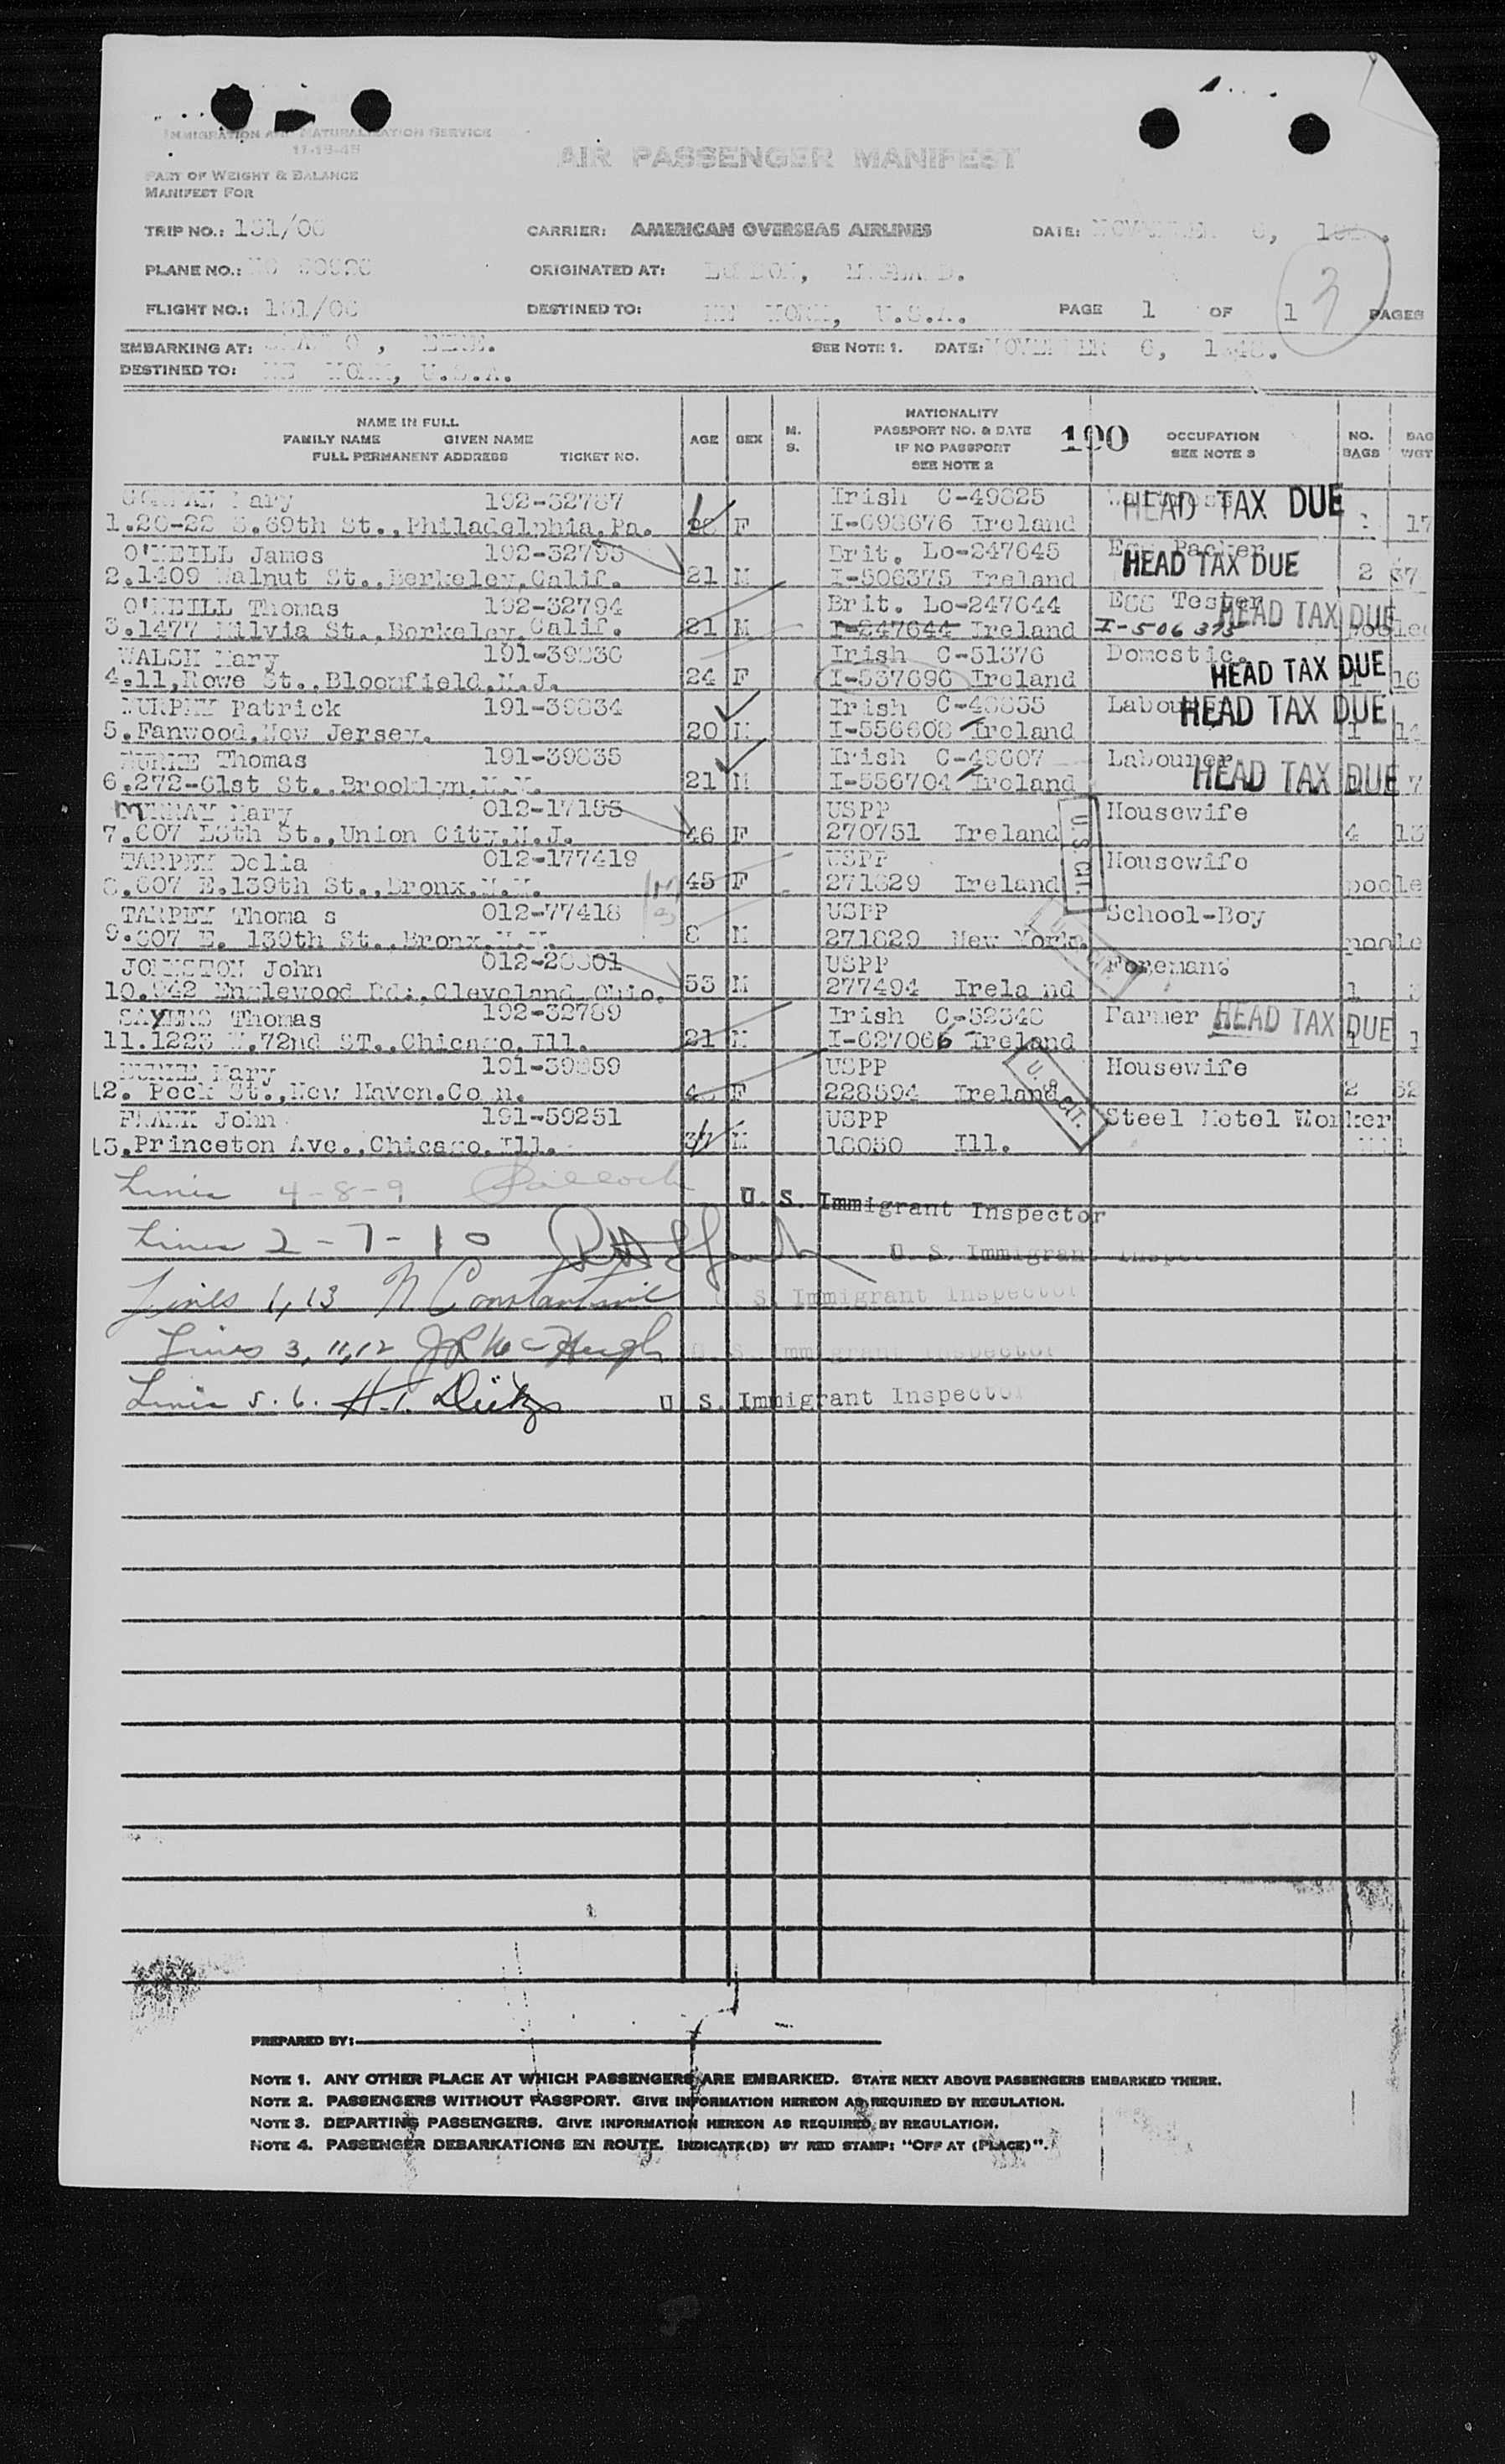 IMMIGRATION AND NATURALIZATION SERVICE
11-18-48
AIR PASSENGER MANIFEST
PART OF WEIGHT & BALANCE
MANIFEST FOR
TRIP NO.: CARRIER: AMERICAN OVERSEAS AIRLINES DATE: NOVEMBER 6,
PLANE NO.: ORIGINATED AT: LONDON, ENGLAND.
FLIGHT NO.: DESTINED TO: NEW YORK, U.S.A. PAGE 1 OF 1 PAGES
3
EMBARKING AT: EIRE. SEE NOTE 1. DATE: NOVEMBER 6, 1948.
DESTINED TO: NEW YORK, U.S.A.
NAME IN FULL
FAMILY NAME GIVEN NAME
FULL PERMANENT ADDRESS TICKET NO.
AGE SEX M. S.
NATIONALITY
PASSPORT NO. & DATE
IF NO PASSPORT
SEE NOTE 2
190
OCCUPATION
SEE NOTE 3
NO. BAGS BAG WGT
Mary 192-32787 Irish C-49825 HEAD TAX DUE
1. 69th St., Philadelphia, Pa. F I-698676 Ireland 1 17
O'NEILL James 192-32793 Brit. Lo-247645 Egg Packer HEAD TAX DUE
2.1409 Walnut St., Berkeley, Calif. 21 M I-506375 Ireland 2 37
O'NEILL Thomas 192-32794 Brit. Lo-247644 Egg Tester HEAD TAX DUE
3.1477 Milvia St., Berkeley, Calif. 21 M I-247644 Ireland I-506373 pooled
WALSH Mary 191-39836 Irish C-51376 Domestic. HEAD TAX DUE
4.11, Rowe St., Bloomfield, N.J. 24 F I-537696 Ireland 1 16
MURPHY Patrick 191-39834 Irish Labourer HEAD TAX DUE
5.Fanwood, New Jersey. 20 M I-556608 Ireland 1 14
Thomas 191-39835 Irish C-49607 Labourer HEAD TAX DUE
6.272-61st St., Brooklyn, N.Y. 21 M I-556704 Ireland 7
MURRAY Mary USPP Housewife
7.607 St., Union City, N.J. 46 F 270751 Ireland 4 13
U.S. CIT.
TARPEY Delia 012-177419 USPP Housewife
8.607 E.139th St., Bronx, N.Y. 45 F 271829 Ireland poole
TARPEY Thoma s 012-77418 USPP School-Boy
9.607 E. 139th St., Bronx, N.Y. 8 M 271829 New York. poole
JOHNSTON John 012-28301 USPP Foreman
10. Englewood Rd., Cleveland, Ohio. 53 M 277494 Irela nd 1
SAYERS Thomas 192-32789 Irish C-52348 Farmer HEAD TAX DUE
11.1223 W.72nd ST., Chicago, Ill. 21 M I-627066 Ireland 1 1
Mary 191-39859 USPP Housewife
12. Peck St., New Haven. Co n. F 228594 Ireland 2 52
U.S. CIT.
FRANK John 191-59251 USPP Steel Metel Worker
13.Princeton Ave., Chicago, Ill. M 18050 Ill.
Lines 4-8-9 U. S. Immigrant Inspector
Lines 2-7-10 U. S. Immigrant Inspec
Lines 1, 13 N Constantine U. S. Immigrant Inspector
Lines 3, 11, 12 J R McHugh U. S. Immigrant Inspector
Lines 5. 6. H.T. U. S. Immigrant Inspector
PREPARED BY:
NOTE 1. ANY OTHER PLACE AT WHICH PASSENGERS ARE EMBARKED. STATE NEXT ABOVE PASSENGERS EMBARKED THERE.
NOTE 2. PASSENGERS WITHOUT PASSPORT. GIVE INFORMATION HEREON AS REQUIRED BY REGULATION.
NOTE 3. DEPARTING PASSENGERS. GIVE INFORMATION HEREON AS REQUIRED BY REGULATION.
NOTE 4. PASSENGER DEBARKATIONS EN ROUTE. INDICATE(D) BY RED STAMP: "OFF AT (PLACE)".